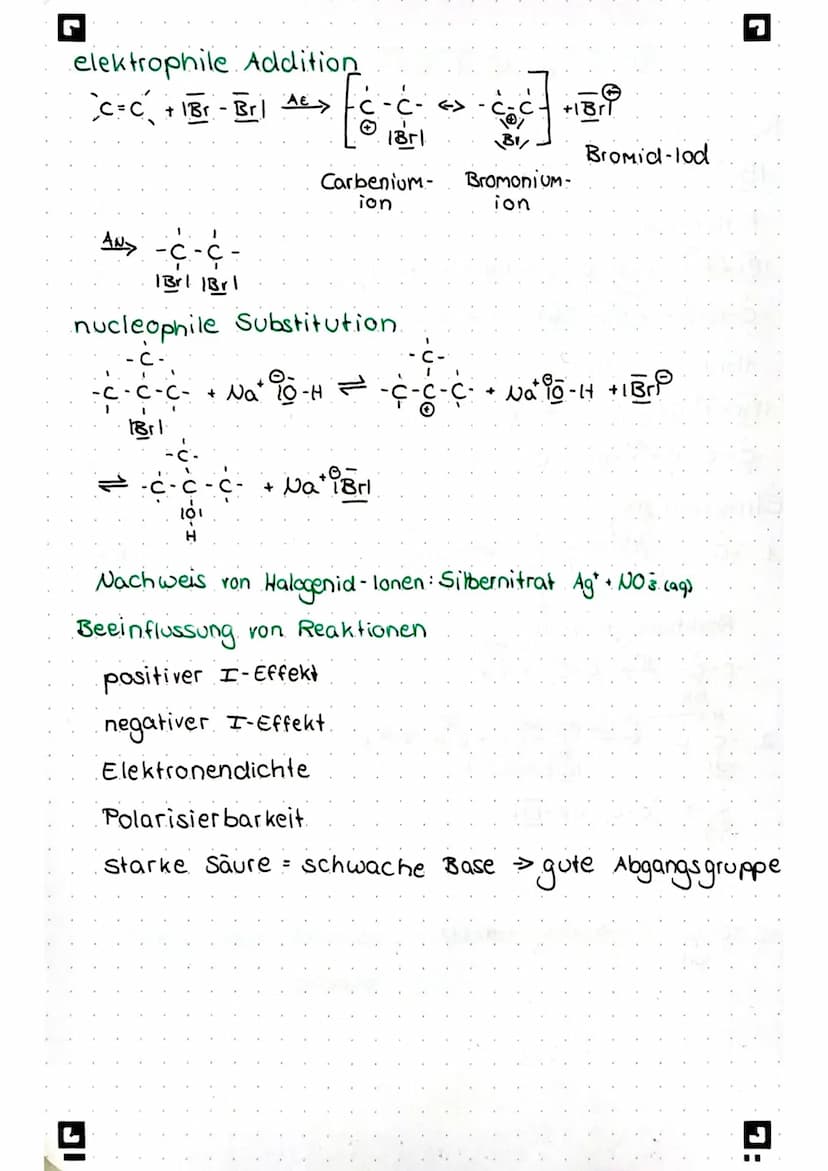 elektrophile Addition
C=C + |Br - Br| AE→ [-C - C- ↔ -C-C-] + |Br|⊖
⊕ |Br| ⊕ Br
Bromid-Iod
Carbenium- Bromonium-
ion ion
AN→ -C-C-
|Br| |Br|
nucleophile Substitution
-C- -C-
-C-C-C- + Na⁺ ⊖|O-H ⇌ -C-C-C- + Na⁺ ⊖|O-H + |Br|⊖
|Br| ⊕
-C-
⇌ -C-C-C- + Na⁺ ⊖|Br|
|O|
H
Nachweis von Halogenid-Ionen: Silbernitrat Ag⁺ + NO₃⁻ (aq)
Beeinflussung von Reaktionen
positiver I-Effekt
negativer I-Effekt
Elektronendichte
Polarisierbarkeit
starke Säure = schwache Base → gute Abgangsgruppe